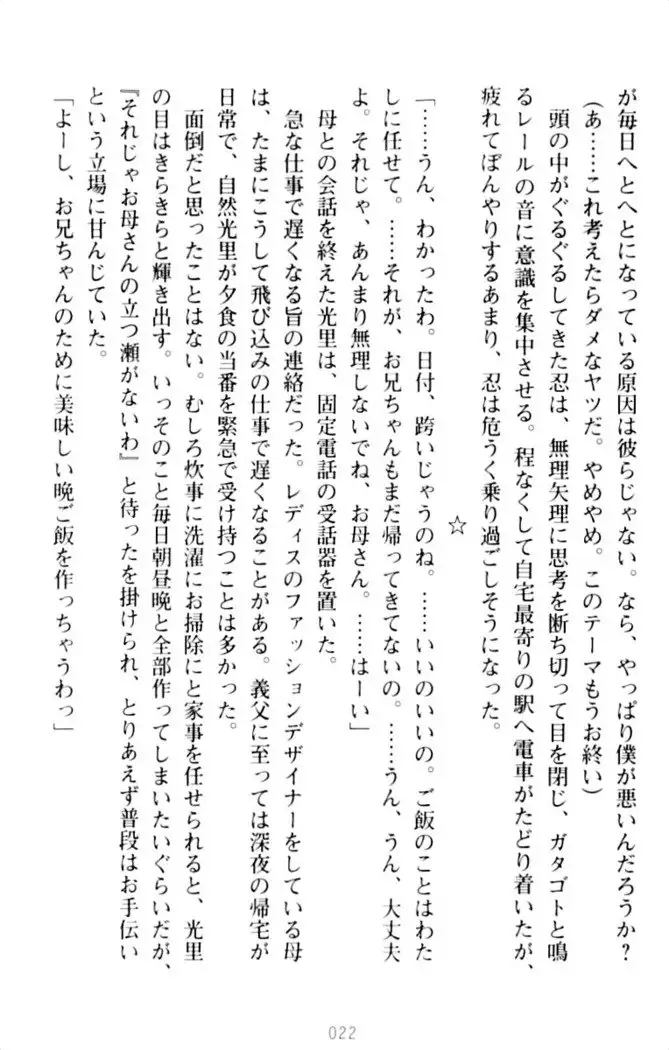 が毎日へとへとになっている原因は彼らじゃない。なら、やっぱり僕が悪いんだろうか?
(あ……これ考えたらダメなヤツだ。やめやめ。このテーマもうお終い)
頭の中がぐるぐるしてきた忍は、無理矢理に思考を断ち切って目を閉じ、ガタゴトと鳴
るレールの音に意識を集中させる。程なくして自宅最寄りの駅へ電車がたどり着いたが、
疲れてぼんやりするあまり、忍は危うく乗り過ごしそうになった。
☆
「……うん、わかったわ。日付、跨いじゃうのね。……いいのいいの。ご飯のことはわた
しに任せて。……それが、お兄ちゃんもまだ帰ってきてないの。……うん、うん、大丈夫
よ。それじゃ、あんまり無理しないでね、お母さん。……はーい」
母との会話を終えた光里は、固定電話の受話器を置いた。
急な仕事で遅くなる旨の連絡だった。レディスのファッションデザイナーをしている母
は、たまにこうして飛び込みの仕事で遅くなることがある。義父に至っては深夜の帰宅が
日常で、自然光里が夕食の当番を緊急で受け持つことは多かった。
面倒だと思ったことはない。むしろ炊事に洗濯にお掃除にと家事を任せられると、光里
の目はきらきらと輝き出す。いっそのこと毎日朝昼晩と全部作ってしまいたいぐらいだが、
『それじゃお母さんの立つ瀬がないわ』と待ったを掛けられ、とりあえず普段はお手伝い
という立場に甘んじていた。
「よーし、お兄ちゃんのために美味しい晩ご飯を作っちゃうわっ」
022